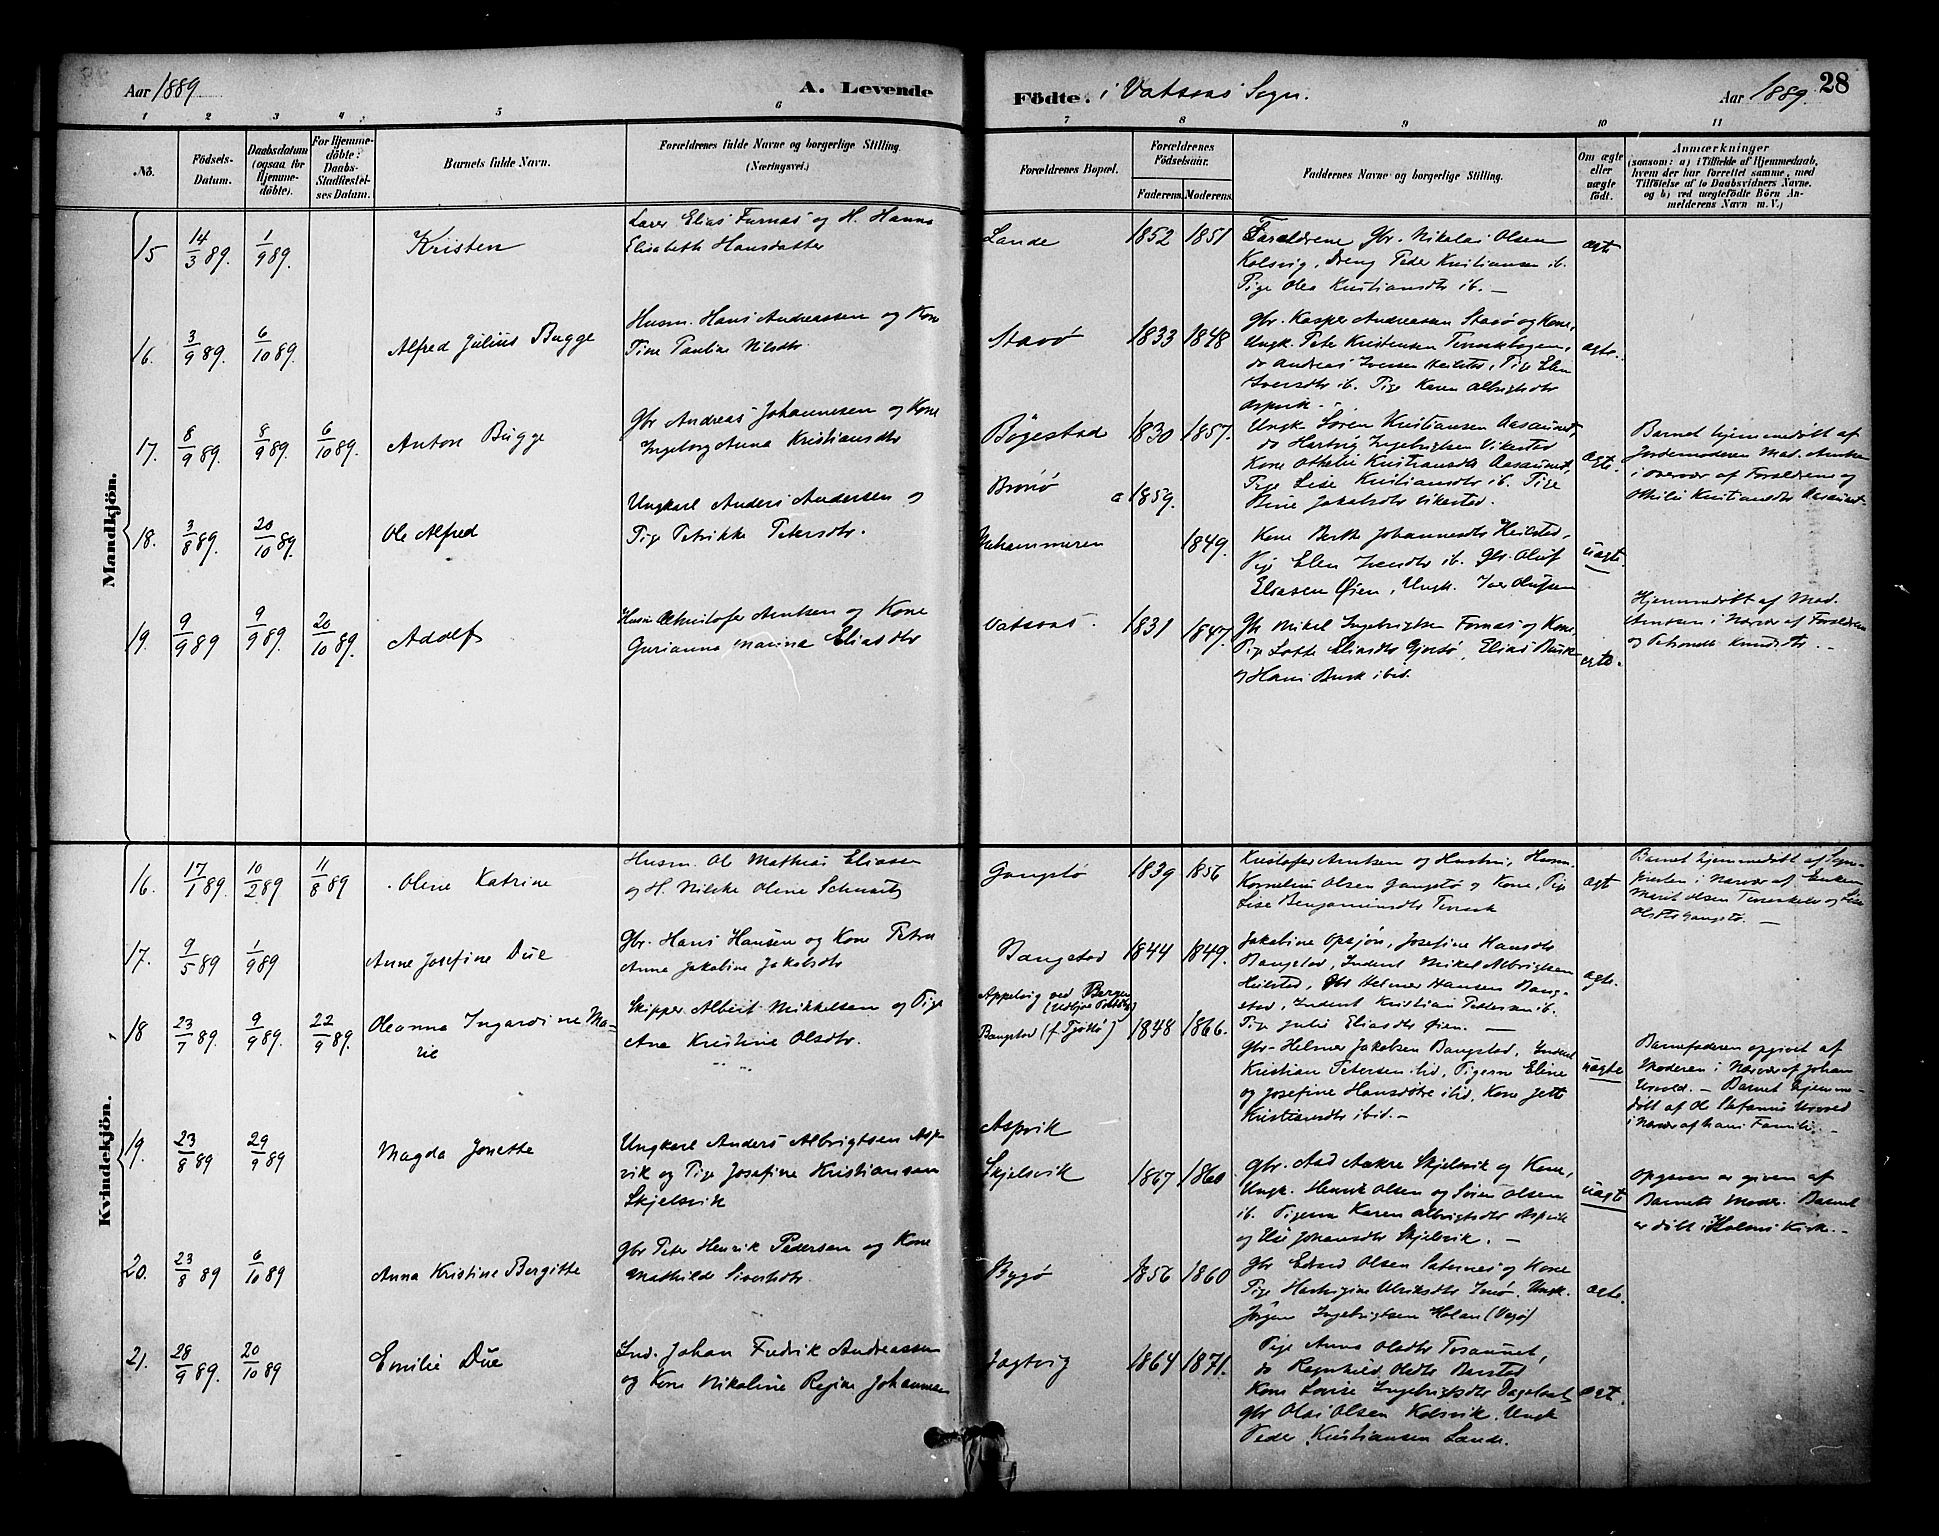 Aar 1889
A. Levende
Födte. i Vatsaas Sogn.
Aar 1889.
28
1 2 3 4 5 6 7 8 9 10 11
No.
Födsels-Datum.
Daabsdatum (ogsaa for Hjemme-döbte).
For Hjemme-döbte: Daabs-Stadfæstel-ses Datum.
Barnets fulde Navn.
Forældrenes fulde Navne og borgerlige Stilling. (Næringsvei.)
Forældrenes Bopæl.
Forældrenes Födselsaar.
Faderens. Moderens.
Faddernes Navne og borgerlige Stilling.
Om ægte eller uægte födt.
Anmærkninger
(saasom: a) i Tilfælde af Hjemmedaab,
hvem der har forrettet samme, med
Tilföielse af to Daabsvidners Navne,
og b) ved uægtefödte Börn An-
melderens Navn m. V.)
Mandkjön.
15 14/3 89. 1/9 89. Kristen
Elias Furnæs og H. Hanna
Elisabeth Hansdatter
Lande 1852 1851
Forældrene Gbr. Nikolai Olsen
Kolsvig, Dreng Peder Kristiansen ib.
Pige Olea Kristiansdtr ib. —
ægte
16. 3/9 89. 6/10 89. Alfred Julius Bugge
Husm. Hans Andreassen og Kone
Tine Paulia Nilsdtr.
Stavø 1833 1848
Gbr. Kasper Andreassen Stavø og Kone,
Ungk. Peter Kristensen
do Andreas Iversen Heilstad, Pige Elen
Iversdtr ib. Pige Karen Albrigtsdtr
Aspvik.
ægte.
17. 8/9 89. 8/9 89. 6/10 89. Anton Bugge
Gbr Andreas Johannesen og Kone
Ingeborg Anna Kristiansdtr
Bøgestad 1830 1857.
Ungk Søren Kristiansen Aasaunet,
do Hartvig Ingebrigtsen Vikestad
Kone Othelie Kristiansdtr Aasaunet,
Pige Lise Kristiansdtr ib. Pige
Jakobsdtr Vikestad.
ægte.
Barnet hjemmedöbt af
Jordemoderen Mad. Arntsen
i Overvær af Forældrene og
Othilie Kristiansdtr Aasaunet.
18. 3/8 89. 20/10 89. Ole Alfred
Ungkarl Anders Andersen og
Pige Petrikke Petersdtr.
Brønø a 1859.
1849.
Kone Berthe Johannesdtr Heilstad,
Pige Elen Iversdtr ib. Gbr. Oluf
Eliasen Øien, Ungk. Iver Olufsen
uægte.
19. 9/9 89 9/9 89. 20/10 89. Adolf
Husm Kristofer Arntsen og Kone
Gurianna Marina Eliasdtr
Vatsaas. 1831 1847.
Gbr Mikel Ingebrigtsen Fornæs og Kone,
Pige Lotte Eliasdtr, Elias Busk
og Hans Busk ibid.
ægte.
Hjemmedöbt af Mad.
Arntsen i Nærvær af Forældrene
og Knudsdtr. —
Kvindekjön.
16. 17/1 89. 10/2 89 11/8 89 Oline Katrine
Husm. Ole Mathias Eliassen
og H. Oline
Gangstø 1839 1856
Kristofer Arntsen og Hustru, Husm.
Kornelius Olsen Gangstø og Kone, Pige
Lise Benjaminsdtr
ægte
Barnet hjemmedöbt af Sogne-
presten i Nærvær af Enken
Marit Olsen og Lise
Olsdtr Gangstø. —
17. 9/5 89 1/9 89 Anne Josefine Due
Gbr. Hans Hansen og Kone Petra
Anna Jakobine Jakobsdtr
Bangstad 1844 1849.
Jakobine Opsjøn, Josefine Hansdtr
Bangstad, Inderst Mikel Albrigtsen
Heilstad, Gbr Helmer Hansen Bang-
stad, Inderst Kristian Pedersen ib.
Pige Julie Eliasdtr Øien. —
ægte.
18 23/7 89. 9/9 89. 22/9 89. Oleanna Ingardine Ma-
rie
Skipper Albert Mikkelsen og Pige
Ane Kristine Olsdtr.
Appelvig ved Bergen
Bangstad (f. Tjøttø) 1848 1866.
Gbr. Helmer Jakobsen Bangstad, Inderst
Kristian Petersen ibid, Pigerne Eline
og Josefine Hansdøtre ibid, Kone
Kristiansdtr ibid. —
uægte
Barnefaderen opgivet af
Moderen i Nærvær af Johan
— Barnet hjemme-
döbt af Ole Stefanus
i Nærvær af hans Familie. —
19. 23/8 89 29/9 89 Magda Jonette
Ungkarl Anders Albrigtsen Asp-
vik og Pige Josefine Kristiansen
Skjelsvik
Aspvik
Skjelsvik 1867 1860
Gbr. Skjelsvik og Kone,
Ungk. Henrik Olsen og Søren Olsen
ib. Pigerne Karen Albrigtsdtr Aspvik
og Johansdtr Skjelsvik. —
uægte
Opgaven er given af
Barnets Moder. Barnet
er döbt i Holms Kirke. —
20. 23/8 89 6/10 89 Anna Kristine Bergitte
Gbr Peter Henrik Pedersen og Kone
Mathilde Sivertsdtr.
Bygø 1856 1860
Gbr Edvard Olsen og Kone
Pige Ulriksdtr, Ungk.
Jørgen Ingebrigtsen Holan
ægte.
21. 28/9 89. 20/10 89 Emilie Due
Ind. Johan Fredrik Andreassen
og Kone Nikoline Regine Johannesen
Jogtvig 1864 1871.
Pige Anna Olsdtr Torsaunet,
do Ragnhild Olsdtr Berstad
Kone Lovise Ingebrigtsdtr
Gbr Olai Olsen Kolsvik, Ungk
Peder Kristiansen Lande.
ægte.